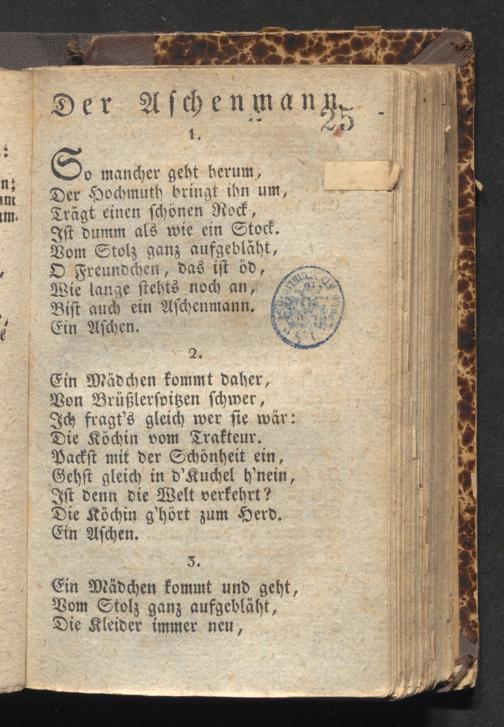 Der Aschenmann.
25
1.
So mancher geht herum,
Der Hochmuth bringt ihn um,
Trägt einen schönen Rock,
Ist dumm als wie ein Stock.
Vom Stolz ganz aufgebläht,
O Freundchen, das ist öd,
Wie lange stehts noch an,
Bist auch ein Aschenmann.
Ein Aschen.
2.
Ein Mädchen kommt daher,
Von Brüßlerspitzen schwer,
Ich fragt's gleich wer sie wär:
Die Köchin vom Trakteur.
Packst mit der Schönheit ein,
Gehst gleich in d'Kuchel h'nein,
Ist denn die Welt verkehrt?
Die Köchin g'hört zum Herd.
Ein Aschen.
3.
Ein Mädchen kommt und geht,
Vom Stolz ganz aufgebläht,
Die Kleider immer neu,